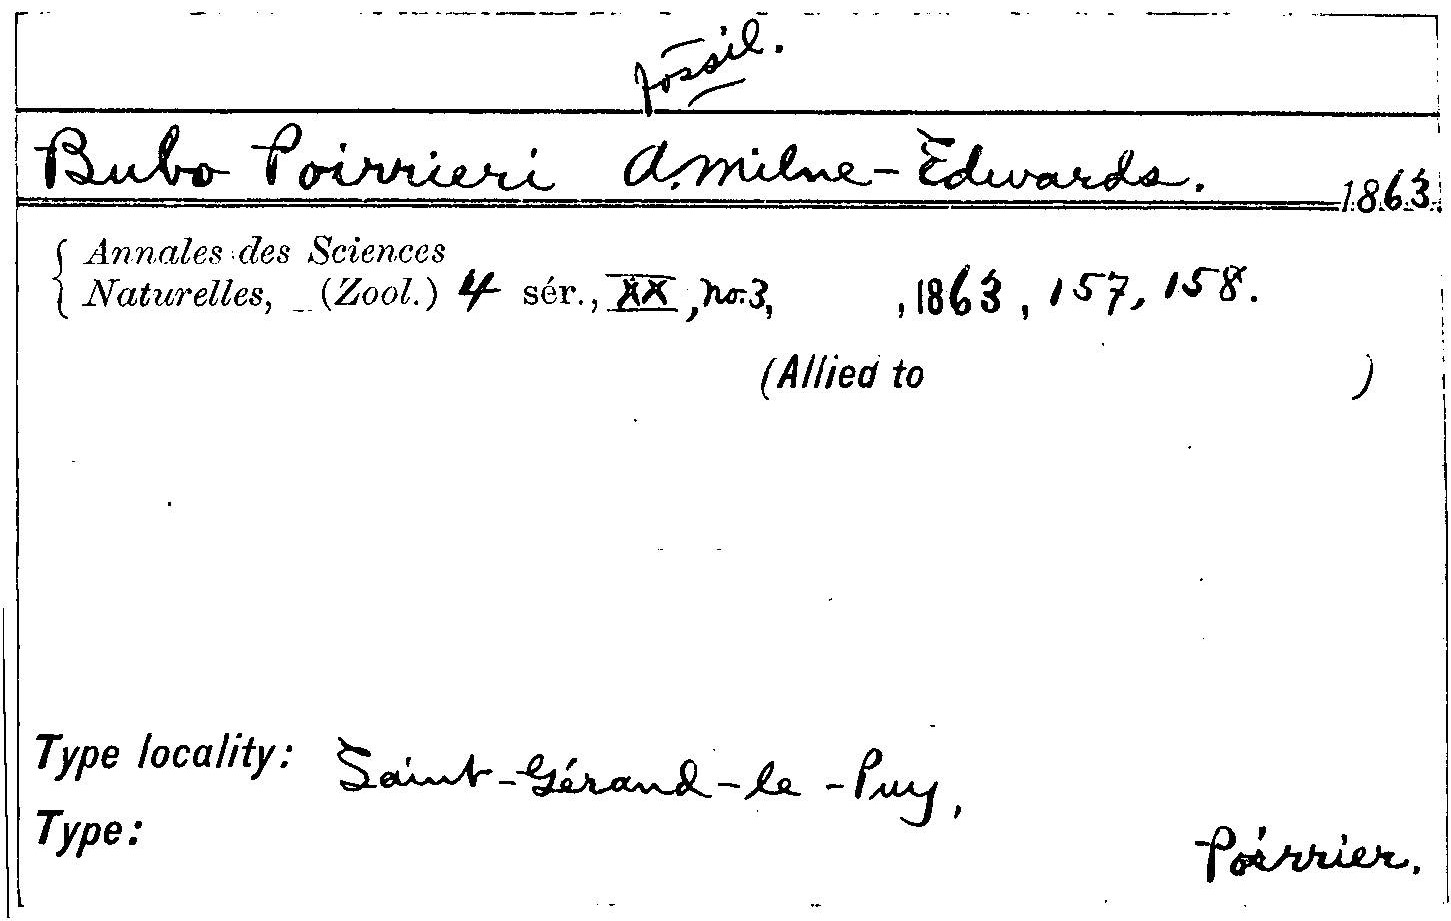 fossil.
Bubo Poirrieri A. Milne-Edwards. 1863.
Annales des Sciences
Naturelles, (Zool.) 4 sér., XX, no. 3, , 1863, 157, 158.
(Allied to )
Type locality: Saint-Gérand-le-Puy,
Type:
Poirrier.